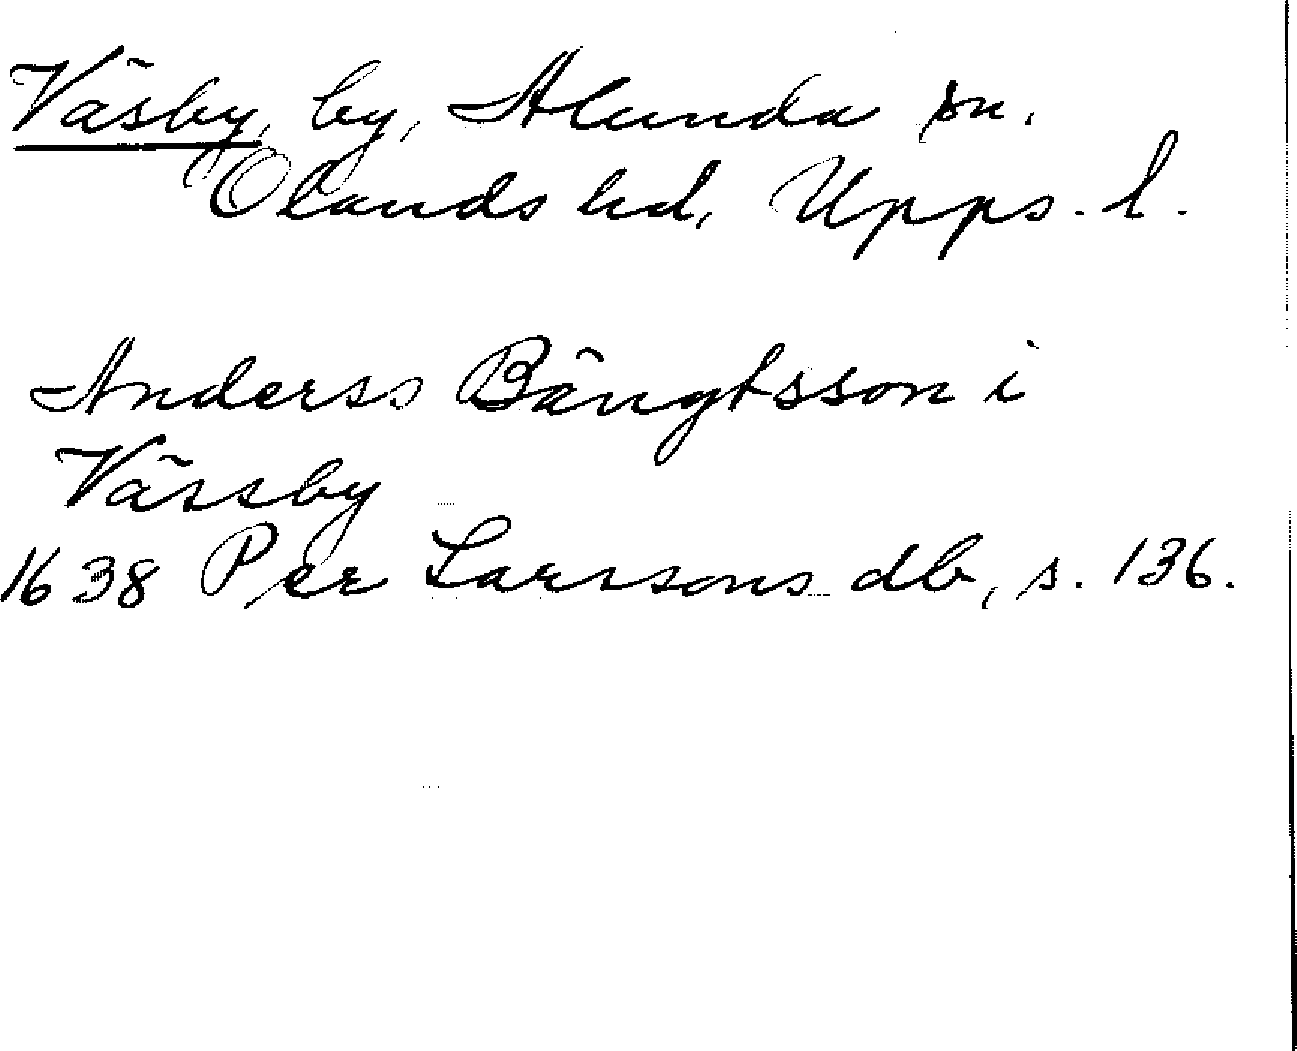 Väsby, by, Alunda sn.
Olands hd, Upps. l.
Anderss Bängtsson i
Vässby
1638 Per Larssons db, s. 136.